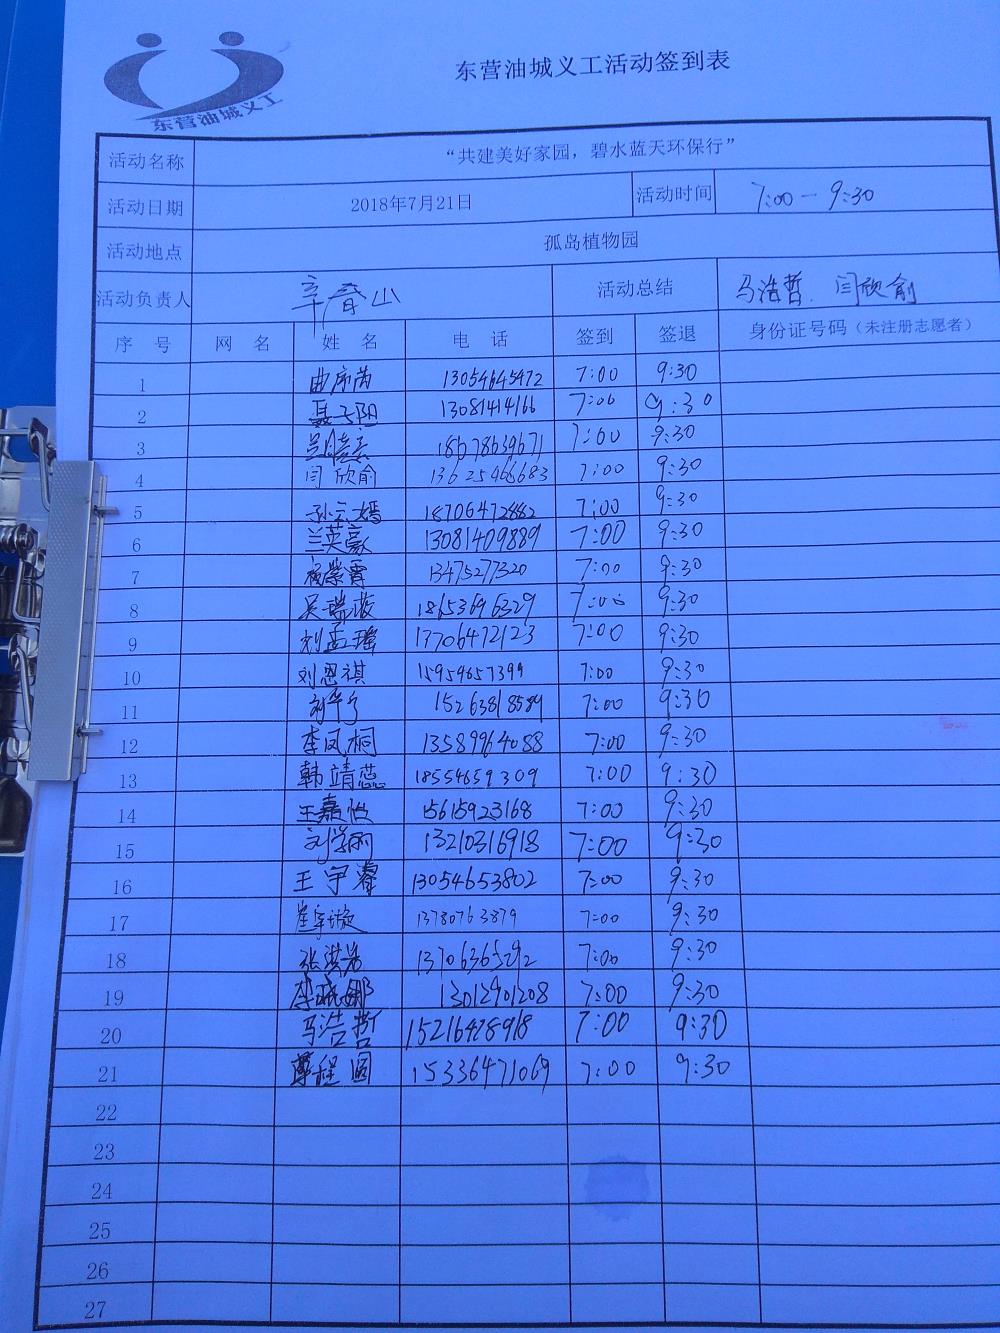 东营油城义工活动签到表
东营油城义工
活动名称 “共建美好家园，碧水蓝天环保行”
活动日期 2018年7月21日 活动时间 7:00—9:30
活动地点 孤岛植物园
活动负责人 辛春山 活动总结 马浩哲、闫欣俞
序 号 网 名 姓 名 电 话 签到 签退 身份证号码（未注册志愿者）
1 13054645472 7:00 9:30
2 聂子阳 13081414166 7:00 9:30
3 18678639671 7:00 9:30
4 闫欣俞 13625466683 7:00 9:30
5 孙云嫣 18706472882 7:00 9:30
6 兰英豪 13081409889 7:00 9:30
7 13475277320 7:00 9:30
8 吴瑞 18653696329 7:00 9:30
9 刘孟瑶 13706472123 7:00 9:30
10 刘恩祺 15954657399 7:00 9:30
11 15263818589 7:00 9:30
12 李凤桐 13589964088 7:00 9:30
13 韩靖蕊 18554659309 7:00 9:30
14 王嘉怡 15615923168 7:00 9:30
15 13210316918 7:00 9:30
16 王宇睿 13054653802 7:00 9:30
17 13780763879 7:00 9:30
18 13706365292 7:00 9:30
19 李晓娜 13012901208 7:00 9:30
20 马浩哲 15216428918 7:00 9:30
21 程圆 15336471069 7:00 9:30
22
23
24
25
26
27